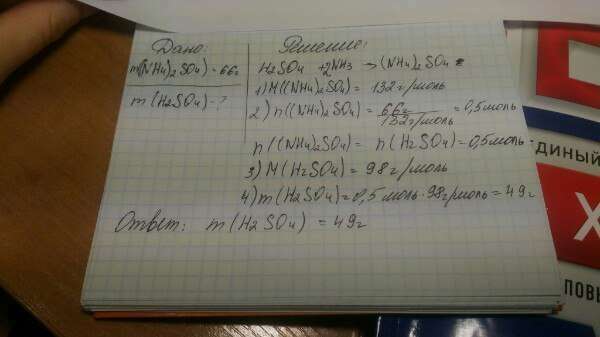 Дано:
m((NH4)2SO4) = 66г
m(H2SO4) - ?
Решение:
H2SO4 + 2NH3 → (NH4)2SO4
1) M((NH4)2SO4) = 132г/моль
2) n((NH4)2SO4) = 66г / 132г/моль = 0,5моль
n((NH4)2SO4) = n(H2SO4) = 0,5моль
3) M(H2SO4) = 98г/моль
4) m(H2SO4) = 0,5моль · 98г/моль = 49г
Ответ: m(H2SO4) = 49г
ДИНЫЙ
Х
ПОВЫ